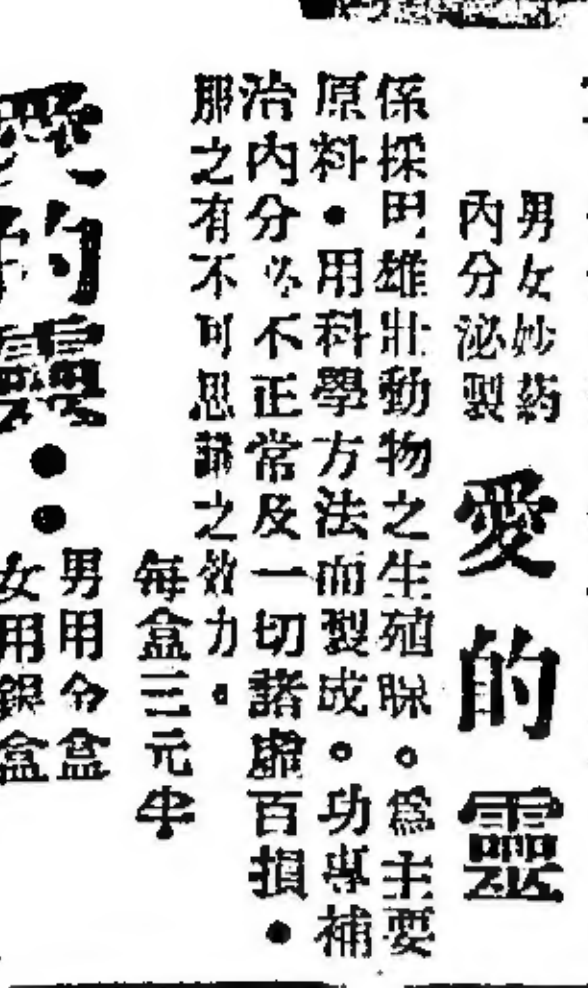 男女妙葯
內分泌製
愛的靈
係採用雄壯動物之生殖腺。爲主要
原料●用科學方法而製成。功專補
治內分必不正常及一切諸虛百損●
那之有不可思議之效力。
每盒三元半
愛的靈●●
男用令盒
女用銀盒